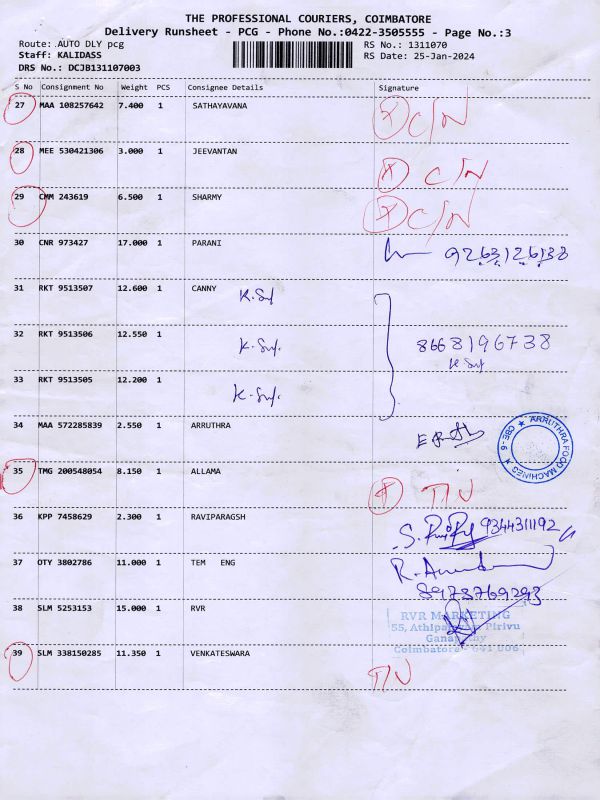 THE PROFESSIONAL COURIERS, COIMBATORE
Delivery Runsheet - PCG - Phone No.:0422-3505555 - Page No.:3
Route: AUTO DLY pcg RS No.: 1311070
Staff: KALIDASS RS Date: 25-Jan-2024
DRS No.: DCJB131107003
S No Consignment No Weight PCS Consignee Details Signature
27 MAA 108257642 7.400 1 SATHAYAVANA C/N
28 MEE 530421306 3.000 1 JEEVANTAN C/N
29 CMM 243619 6.500 1 SHARMY C/N
30 CNR 973427 17.000 1 PARANI 9263126138
31 RKT 9513507 12.600 1 CANNY
32 RKT 9513506 12.550 1 8668196738
33 RKT 9513505 12.200 1
34 MAA 572285839 2.550 1 ARRUTHRA
ARRUTHRA FOOD MACHINES CBE-6
35 TMG 200548054 8.150 1 ALLAMA T/V
36 KPP 7458629 2.300 1 RAVIPARAGSH 9344311192
37 OTY 3802786 11.000 1 TEM ENG
8973769293
38 SLM 5253153 15.000 1 RVR
RVR MARKETING
55, Pirivu
Coimbatore - 641 006
39 SLM 338150285 11.350 1 VENKATESWARA
T/V